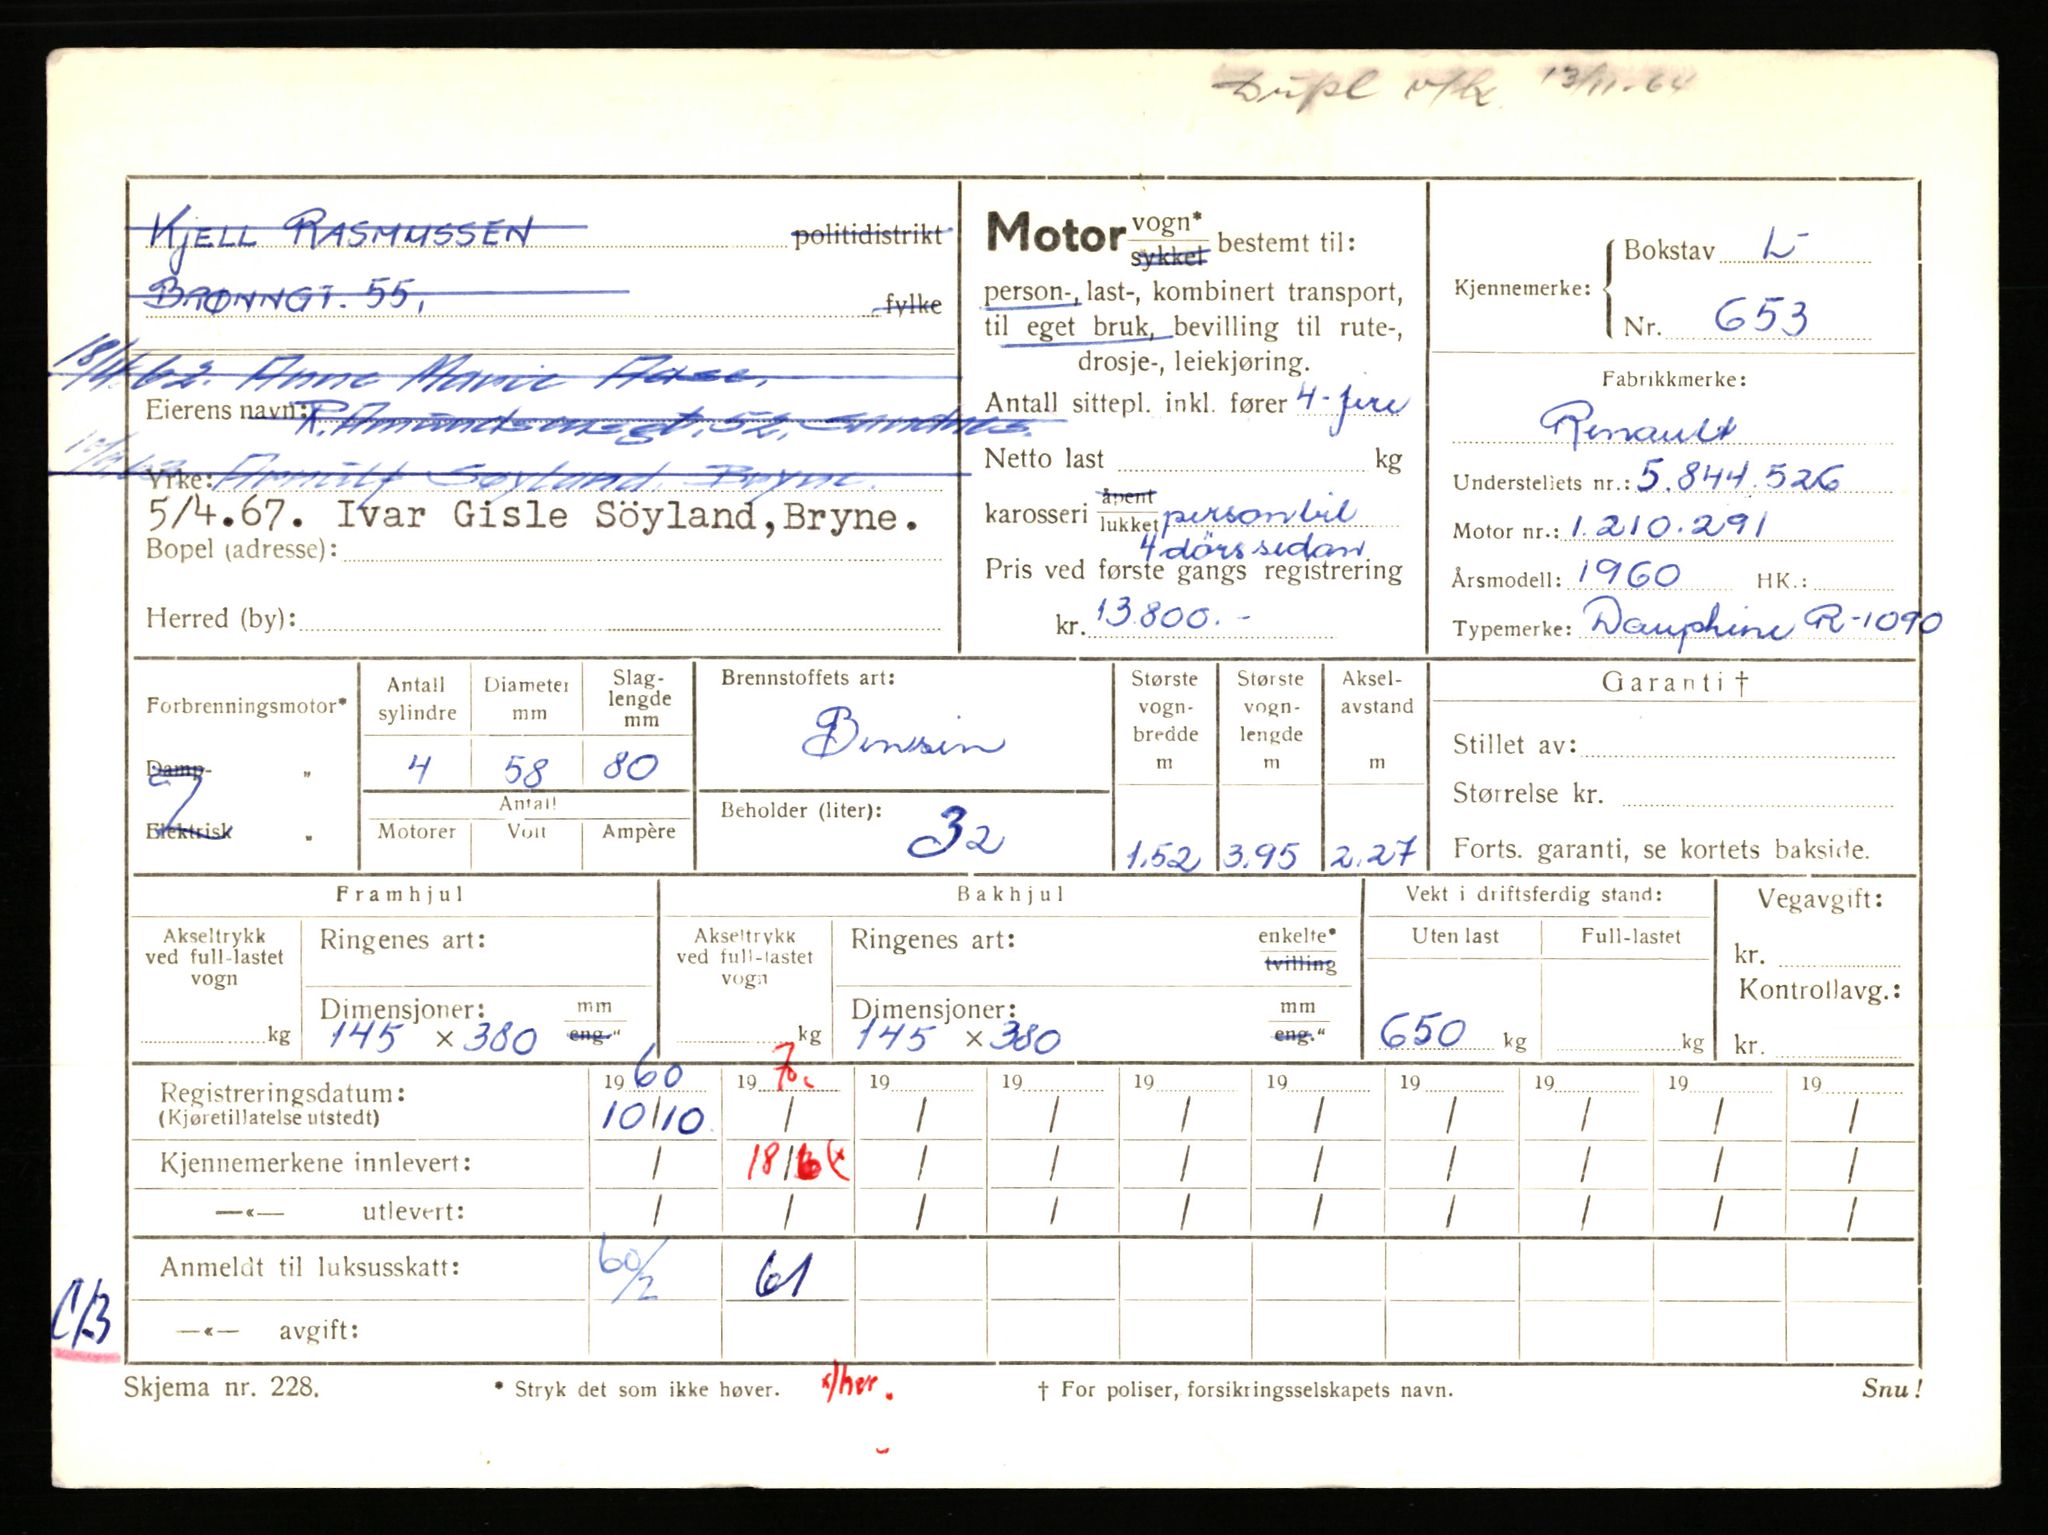 Dupl v/k 13/11-64
KJELL RASMUSSEN politidistrikt
BRØNNGT. 55, fylke
18/4.62. Anne Marie Aase.
Eierens navn: R. Amundsensgt. 52, Sandnes.
Yrke: Arnulf Søyland. Bryne.
5/4.67. Ivar Gisle Söyland, Bryne.
Bopel (adresse):
Herred (by):
Motor vogn* sykkel bestemt til:
person-, last-, kombinert transport,
til eget bruk, bevilling til rute-,
drosje-, leiekjøring.
Antall sittepl. inkl. fører 4-fire
Netto last kg
karosseri åpent lukket personbil
4 dørs sedan
Pris ved første gangs registrering
kr. 13.800.-
Kjennemerke: Bokstav L
Nr. 653
Fabrikkmerke:
Renault
Understellets nr.: 5.844.526
Motor nr.: 1.210.291
Årsmodell: 1960 HK.:
Typemerke: Dauphine R-1090
Forbrenningsmotor*
Damp- "
Elektrisk "
Antall sylindre 4
Diameter mm 58
Slaglengde mm 80
Antall
Motorer Volt Ampère
Brennstoffets art:
Bensin
Beholder (liter): 32
Største vogn-bredde m 1.52
Største vogn-lengde m 3.95
Aksel-avstand m 2.27
Garanti †
Stillet av:
Størrelse kr.
Forts. garanti, se kortets bakside.
Framhjul
Akseltrykk ved full-lastet vogn kg
Ringenes art:
Dimensjoner: mm eng."
145 × 380
Bakhjul
Akseltrykk ved full-lastet vogn kg
Ringenes art: enkelte* tvilling
Dimensjoner: mm eng."
145 × 380
Vekt i driftsferdig stand:
Uten last Full-lastet
650 kg kg
Vegavgift:
kr.
Kontrollavg.:
kr.
Registreringsdatum: 19 60 19 70. 19 19 19 19 19 19 19 19
(Kjøretillatelse utstedt) 10/10 / / / / / / / / /
Kjennemerkene innlevert: / 18/6 x / / / / / / / /
—«— utlevert: / / / / / / / / / /
Anmeldt til luksusskatt: 60/2 61
—«— avgift:
C/B
Skjema nr. 228. * Stryk det som ikke høver. x/her. † For poliser, forsikringsselskapets navn. Snu!